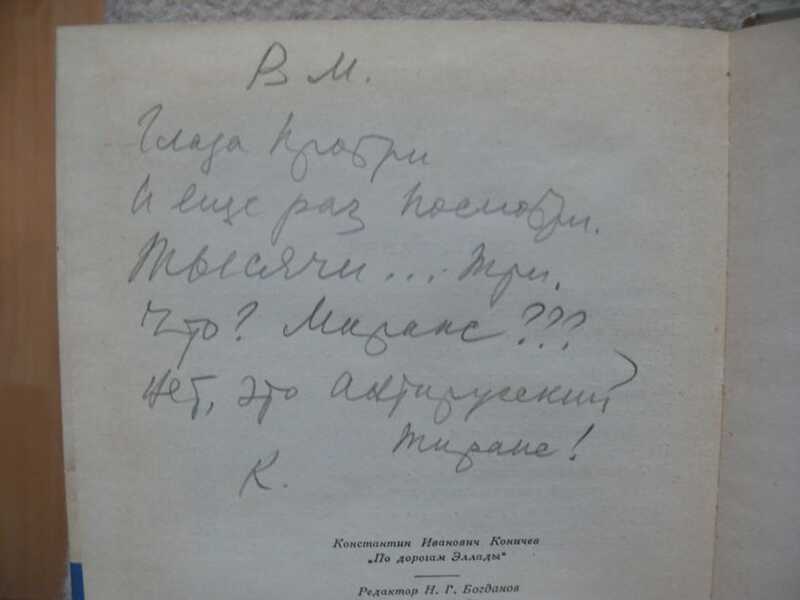 В М.
Глаза протри
И еще раз посмотри.
Тысячи... три.
Что? Мираж???
Нет, это Антирусский
тираж!
К.
Константин Иванович Коничев
„По дорогам Эллады“
Редактор Н. Г. Богданов